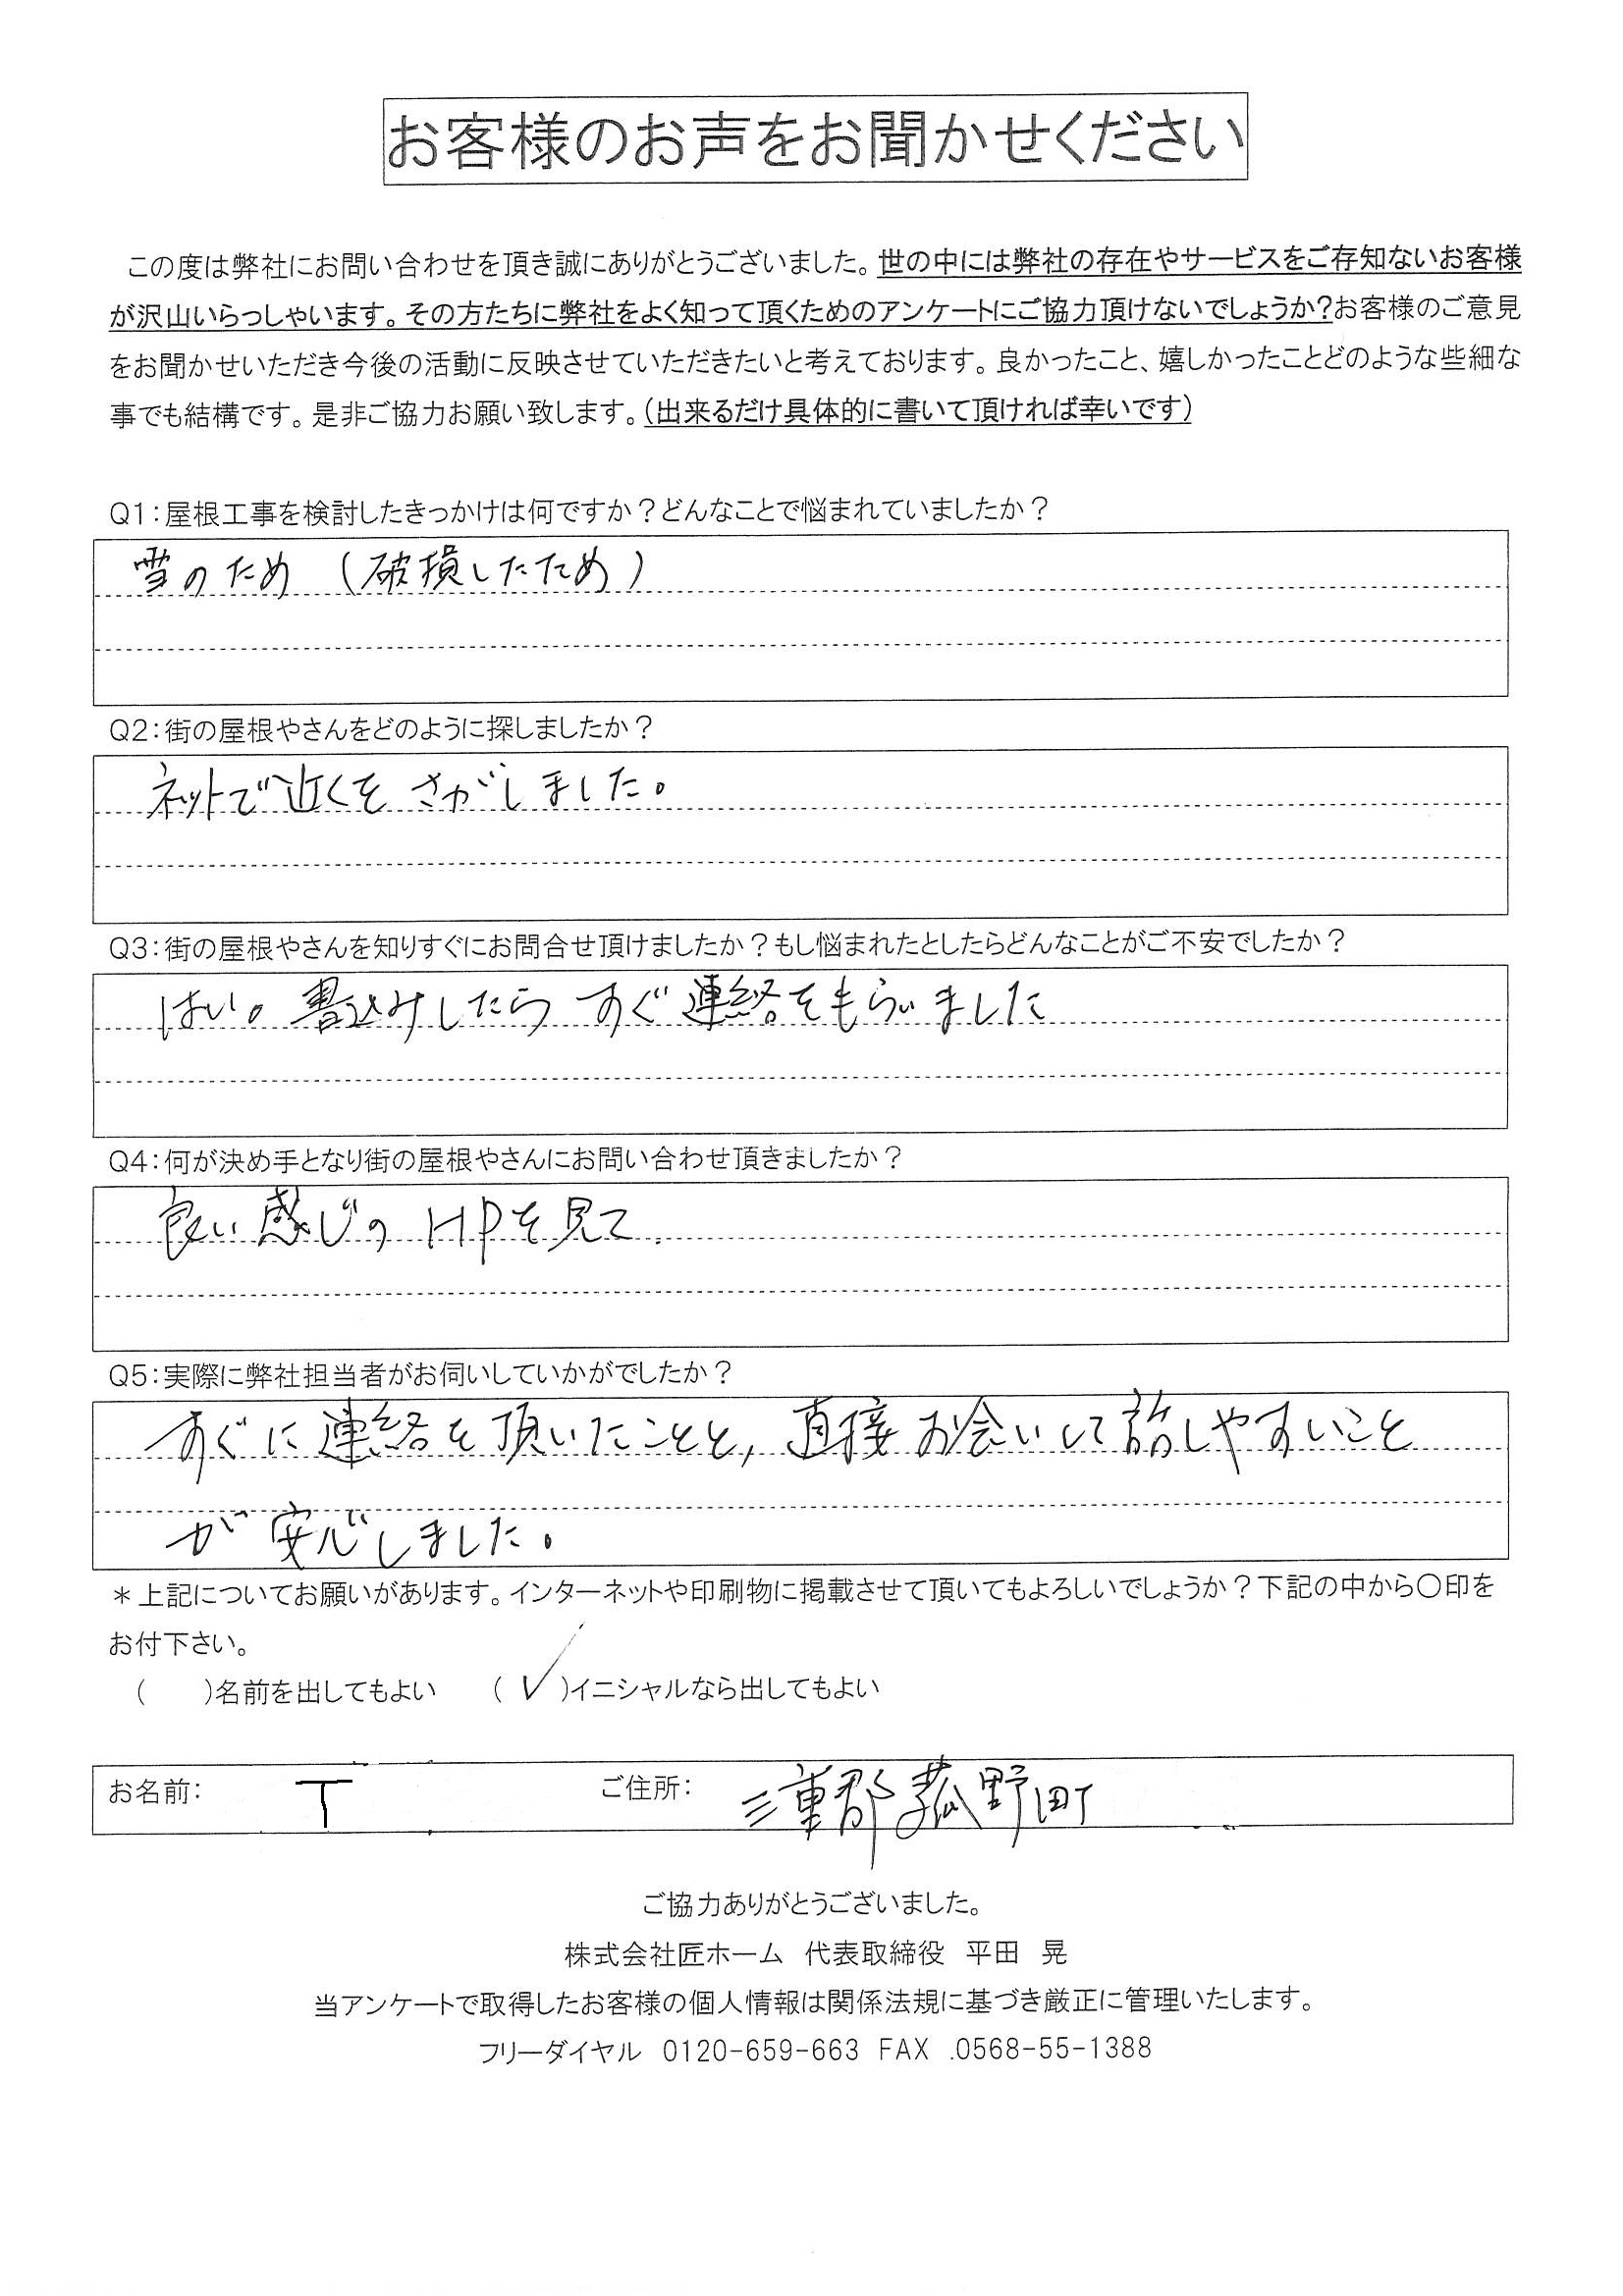 お客様のお声をお聞かせください
この度は弊社にお問い合わせを頂き誠にありがとうございました。世の中には弊社の存在やサービスをご存知ないお客様
が沢山いらっしゃいます。その方たちに弊社をよく知って頂くためのアンケートにご協力頂けないでしょうか?お客様のご意見
をお聞かせいただき今後の活動に反映させていただきたいと考えております。良かったこと、嬉しかったことどのような些細な
事でも結構です。是非ご協力お願い致します。(出来るだけ具体的に書いて頂ければ幸いです)
Q1:屋根工事を検討したきっかけは何ですか?どんなことで悩まれていましたか?
雪のため (破損したため)
Q2:街の屋根やさんをどのように探しましたか?
ネットで近くをさがしました。
Q3:街の屋根やさんを知りすぐにお問合せ頂けましたか?もし悩まれたとしたらどんなことがご不安でしたか?
はい。書込みしたら すぐ連絡をもらいました
Q4:何が決め手となり街の屋根やさんにお問い合わせ頂きましたか?
良い感じの HPを見て.
Q5:実際に弊社担当者がお伺いしていかがでしたか?
すぐに連絡を頂いたことと, 直接お会いして話しやすいこと
が安心しました。
*上記についてお願いがあります。インターネットや印刷物に掲載させて頂いてもよろしいでしょうか?下記の中から〇印を
お付下さい。
( )名前を出してもよい (✓)イニシャルなら出してもよい
お名前: T ご住所: 三重郡菰野町
ご協力ありがとうございました。
株式会社匠ホーム 代表取締役 平田 晃
当アンケートで取得したお客様の個人情報は関係法規に基づき厳正に管理いたします。
フリーダイヤル 0120-659-663 FAX .0568-55-1388